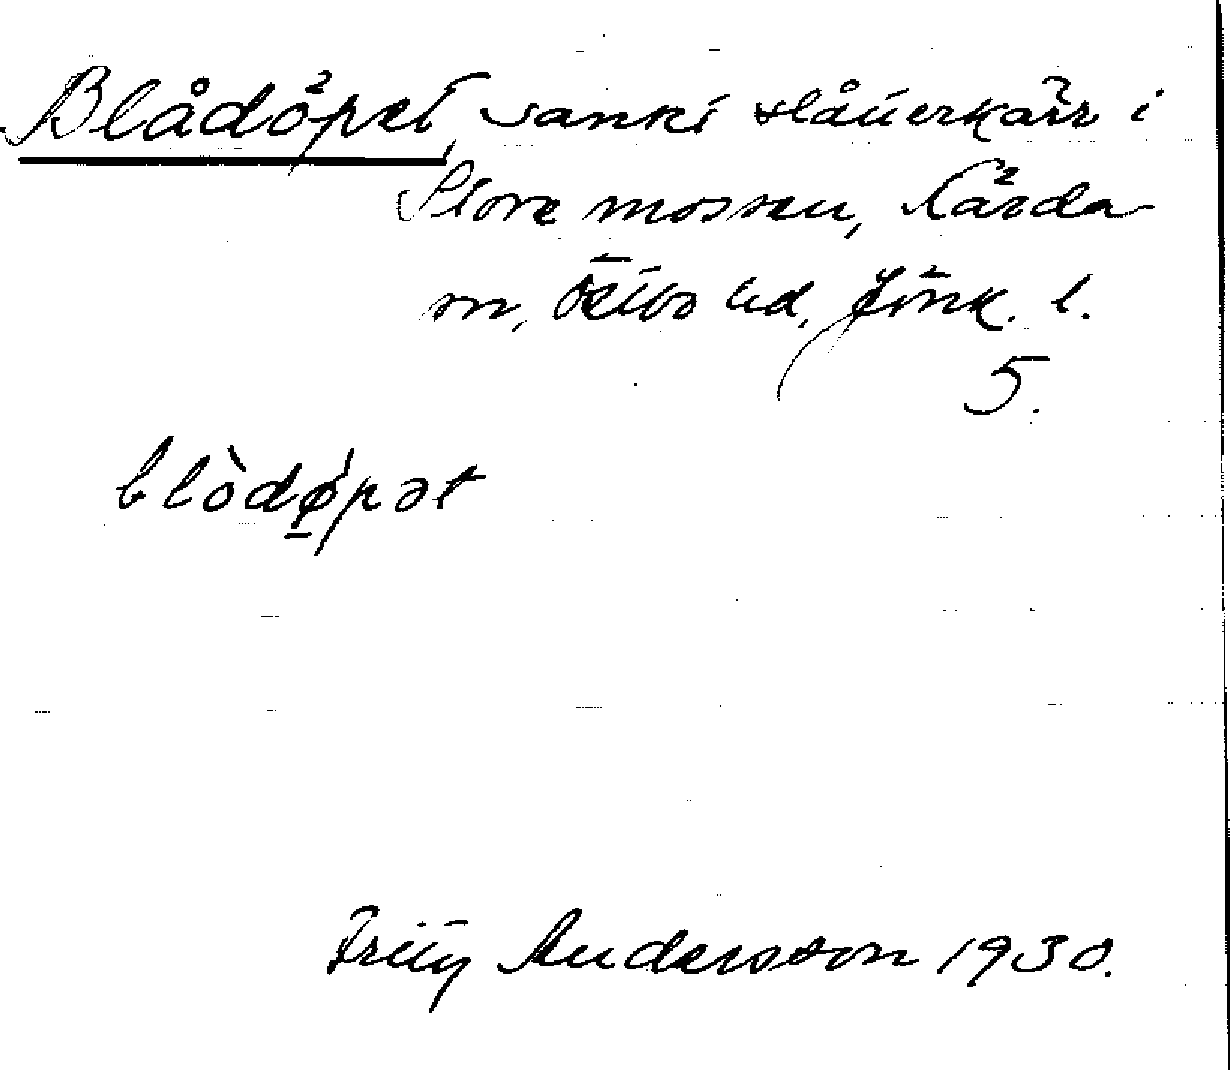 Blådöpet, sankt slåtterkärr i
Stora mossen, Kärda
sn, Östbo hd, Jönk. l.
5.
blòdǿ̠pət
Fritz Andersson 1930.